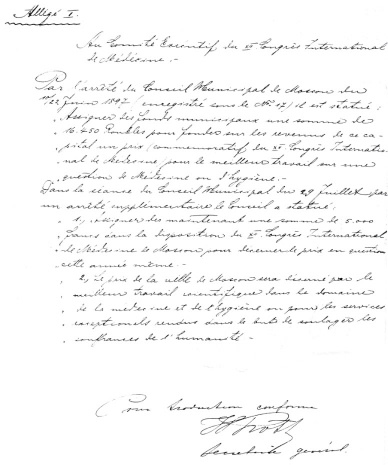 Allégé I.
Au Comité Executif du XII Congrès International
de Médecine.-
Par l'arrêté du Conseil Municipal de Moscou du
22 Juin 1897 (enregistré sous le No 17) il est statué:
"Assigner des fonds municipaux une somme de
" 16.450 Roubles pour fonder sur les revenus de ce ca-
" pital un prix (commemoratif du XII Congrès Internatio-
" nal de Médecine) pour le meilleur travail sur une
" question de Médecine ou d'hygiène.-
Dans la séance du Conseil Municipal du 29 Juillet par
un arrêté supplémentaire le Conseil a statué:
" 1, assigner dès maintenant une somme de 5.000
" francs dans la disposition du XII Congrès International
" de Médecine de Moscou pour décerner le prix en question
" cette année même.-
" 2, Le prix de la ville de Moscou sera décerné par le
" meilleur travail scientifique dans le domaine
" de la médecine et de l'hygiène ou pour les services
" exceptionels rendus dans le but de soulager les
" souffrances de l'humanité.-
Pour traduction conforme
Secrétaire général.